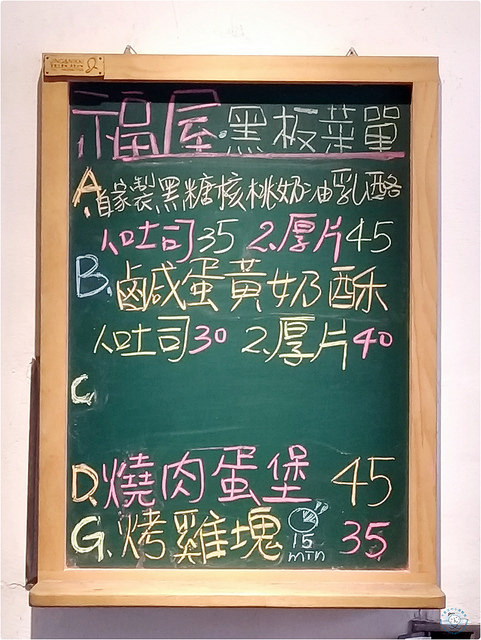 福屋·黑板菜單
A.自家製黑糖核桃奶油乳酪
1.吐司35 2.厚片45
B.鹹蛋黃奶酥
1.吐司30 2.厚片40
C
D.燒肉蛋堡 45
G.烤雞塊 15 min 35